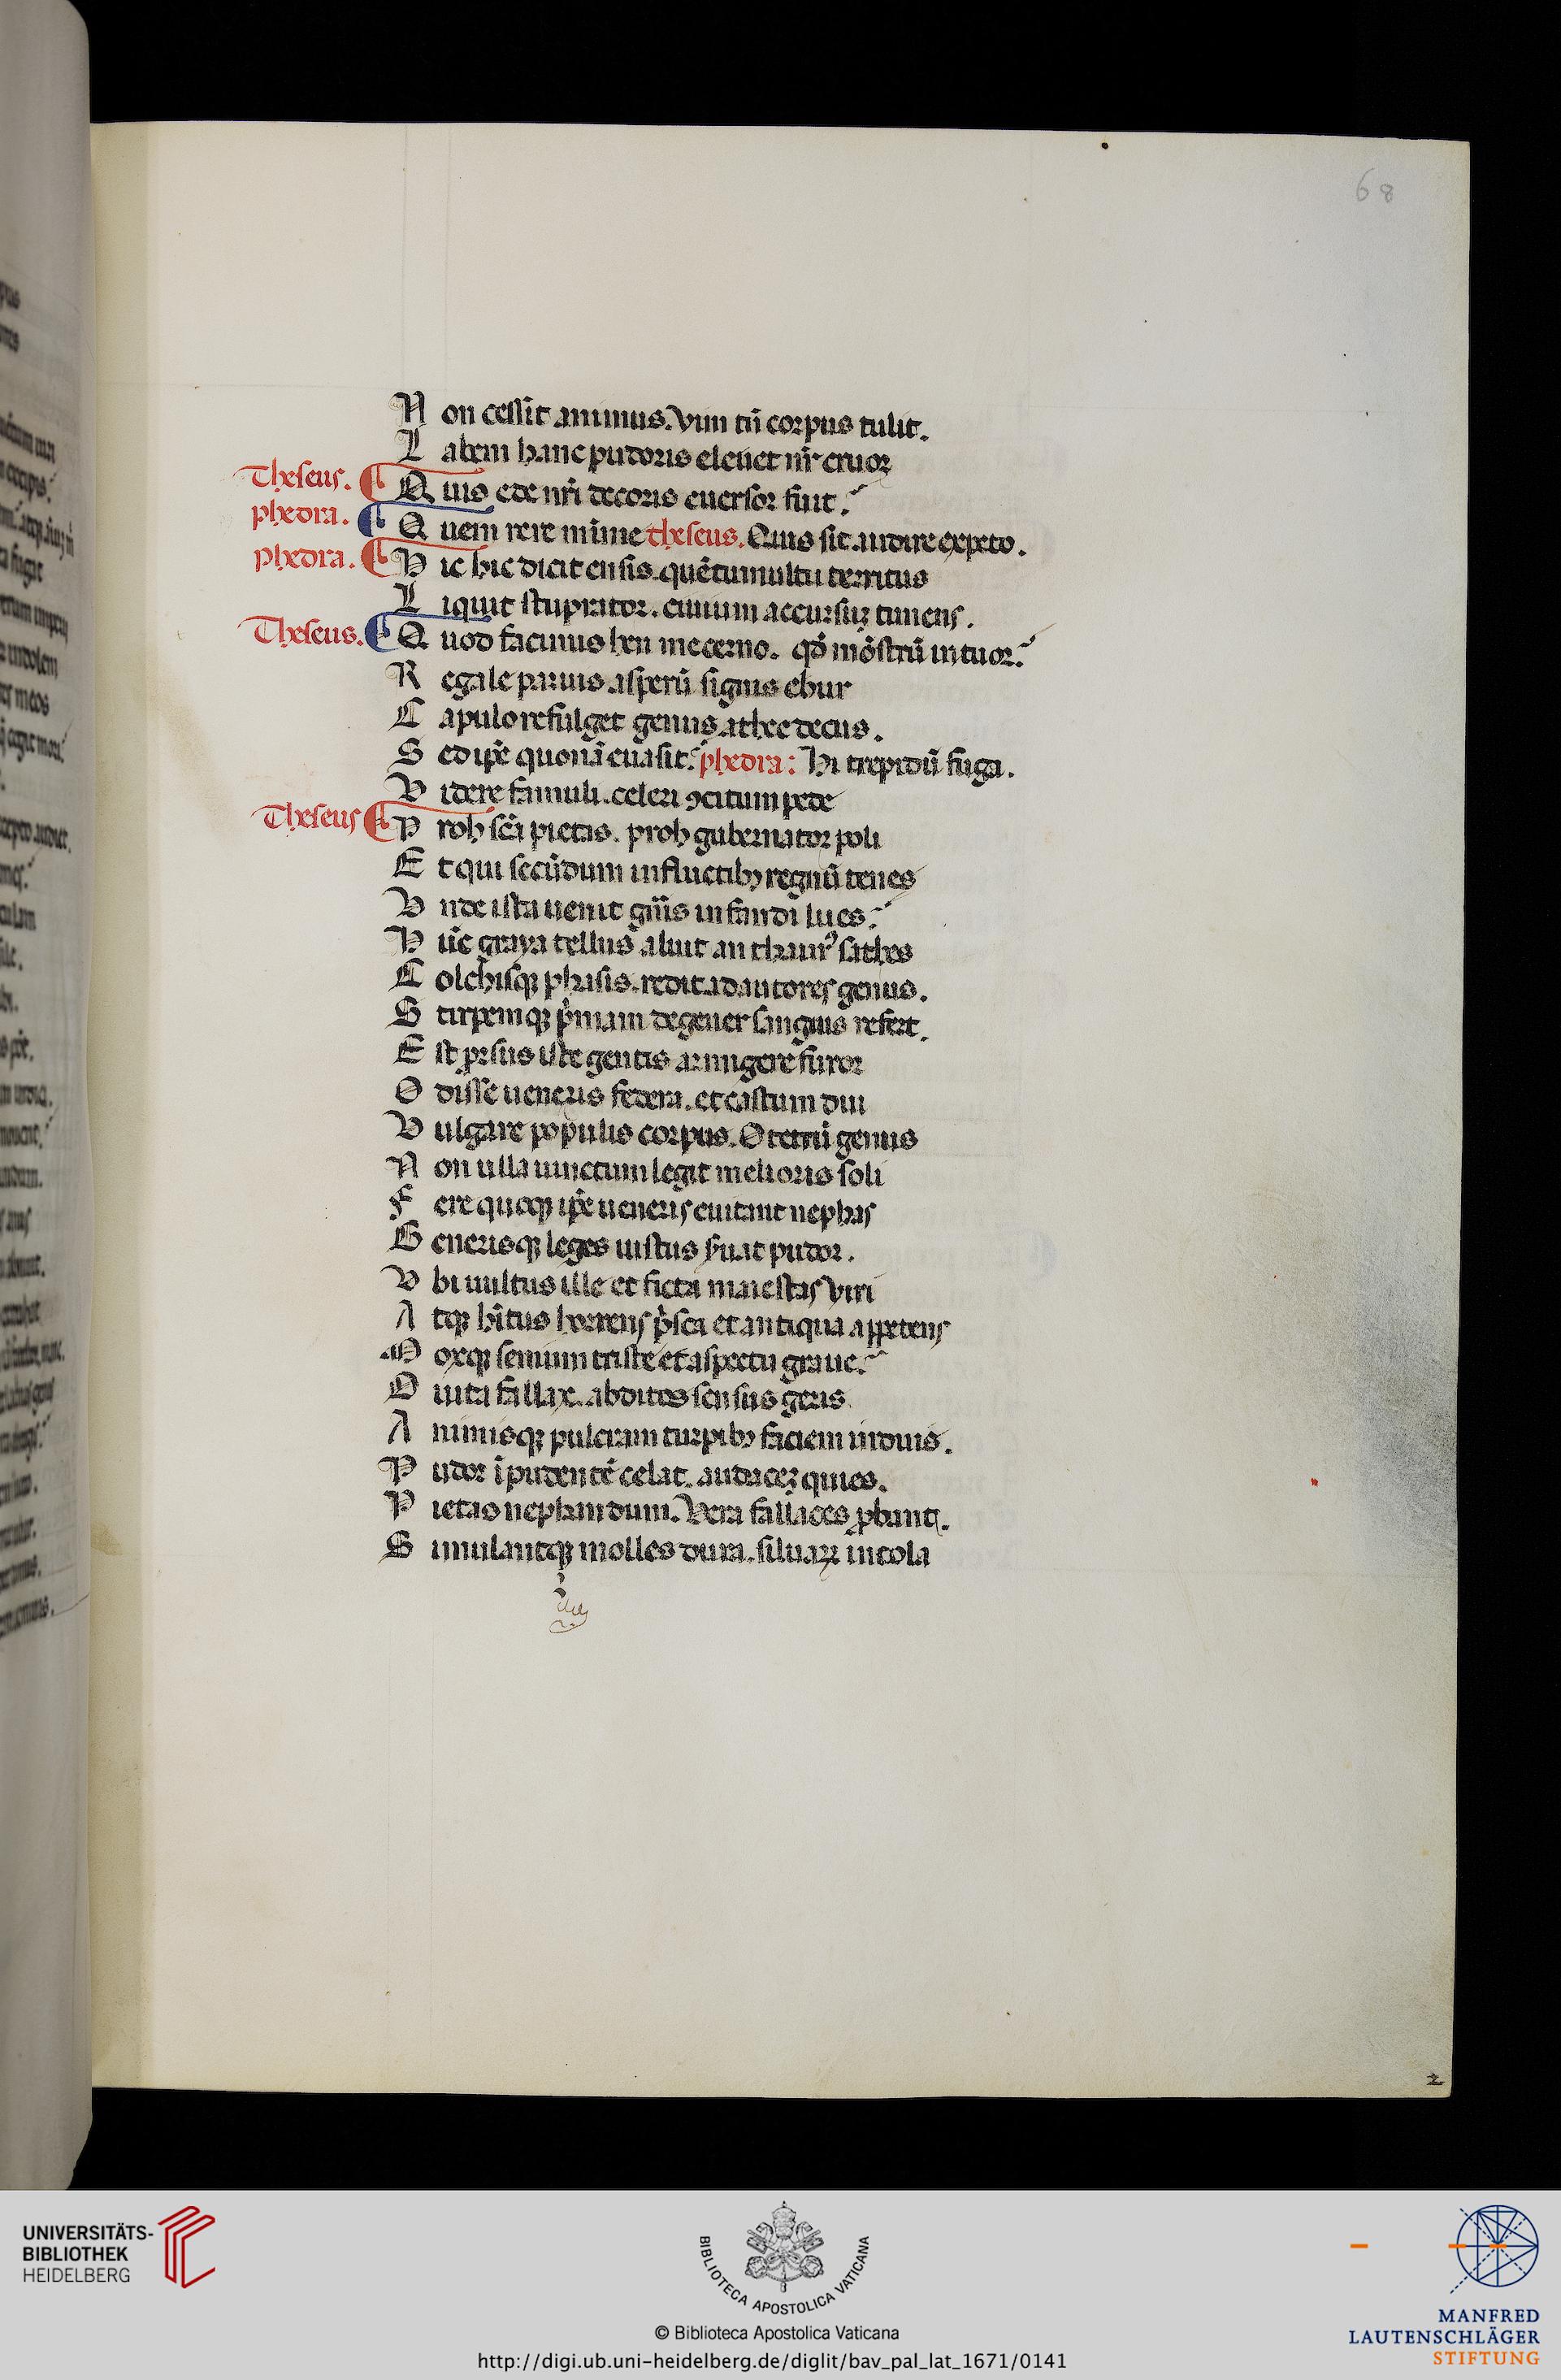 68
N on cessit animus. Vim tn̄ corpus tulit.
L abem hanc pudoris eleuet nr̄ cruor
Theseus. Q uis ede nr̄i decoris euersor fuit?
phedra. Q uem rere mīme theseus. Quis sit audire expeto.
Phedra. H ic hic dicit ensis. quē tumultu territus
L iquit stuprator. ciuium accursuꝫ timens.
Theseus. Q uod facinus heu me cerno. qđ mōstrū intuor?
R egale paruis asperū signis ebur
C apulo refulget genus athee decus.
S ed ip̄e quonā euasit? phedra: Hi trepidū fuga.
V idere famuli. celeri ꝯcitum pede
Theseus P roh sc̄a pietas. proh gubernator poli
E t qui secūdum in fluctibꝫ regnū tenes
V nde ista uenit gn̄is infandi lues?
H ūc graya tellus aluit an thaurꝰ sithes
C olchisqꝫ phasis. redit ad autores genus.
S tirpemqꝫ pͥmam degener sanguis refert.
E st ꝓrsus iste gentis armigere furor
O disse ueneris federa. et castum diu
V ulgare populis corpus. O tetrū genus
N on ulla uinctum legit melioris soli
F ere quoqꝫ ip̄e ueneris euitant nephas
G enerisqꝫ leges iustus ẜuat pudor.
V bi uultus ille et ficta maiestas viri
A tqꝫ hītus horrens pͥsca et antiqua appetens
M orqꝫ senium triste et aspectu graue?
O uita fallax. abditos sensus geris
A nimisqꝫ pulcram turpibꝫ faciem induis.
P udor īpudentē celat. audaceꝫ quies.
P ietas nephandum. Vera fallaces ꝓbant.
S imulantqꝫ molles dura. siluaꝝ incola
2
UNIVERSITÄTS-
BIBLIOTHEK
HEIDELBERG
BIBLIOTECA APOSTOLICA VATICANA
© Biblioteca Apostolica Vaticana
http://digi.ub.uni-heidelberg.de/diglit/bav_pal_lat_1671/0141
MANFRED
LAUTENSCHLÄGER
STIFTUNG